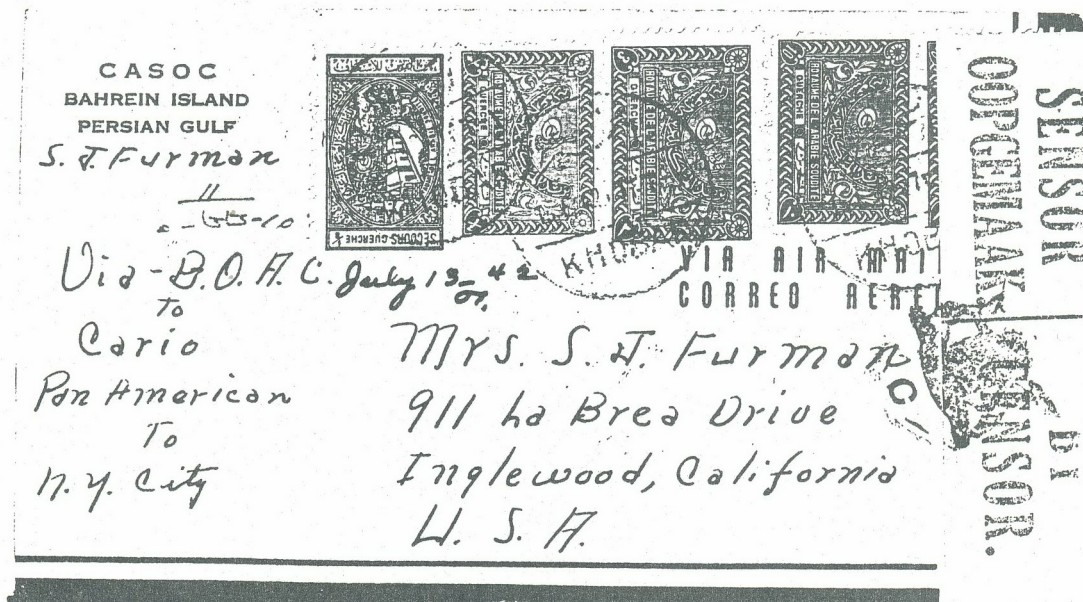 CASOC
BAHREIN ISLAND
PERSIAN GULF
S. J. Furman
Via - B.O.A.C. July 13 42
To
Cario
Pan American
To
N.Y. City
SECOURS GUERCHE
VIA AIR MAI
CORREO AERE
KHOB
KHO
Mrs. S. J. Furman
911 La Brea Drive
Inglewood, California
U. S. A.
C
SENSOR
OOPGEMAAK
BY
SENSOR.